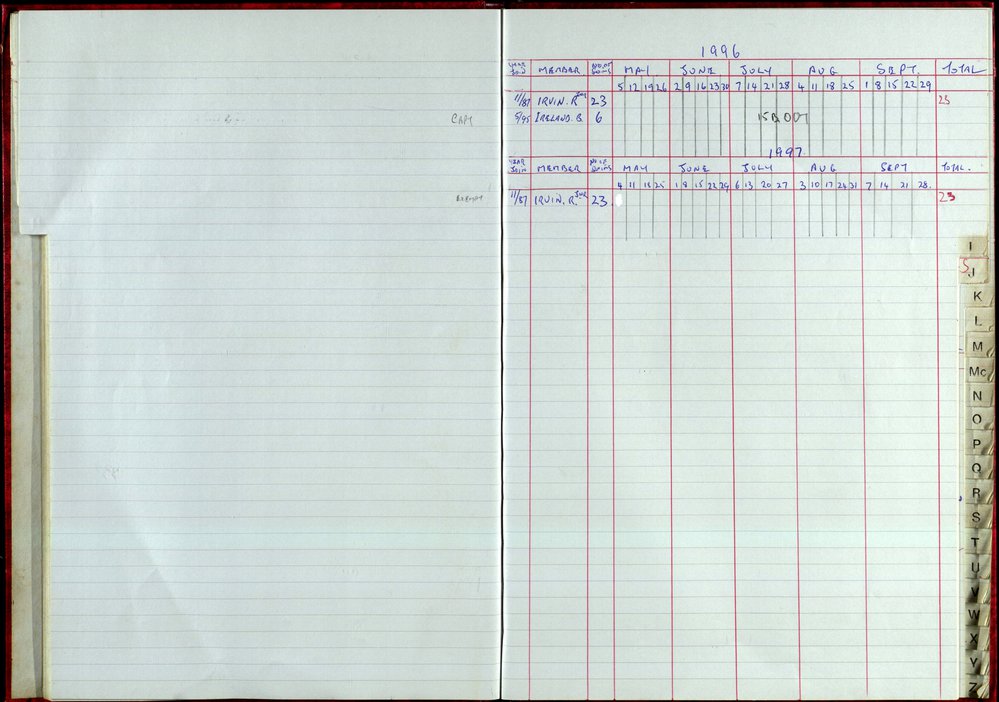 CAPT
EXEMPT
1996
YEAR JOIN MEMBER NO. OF SWIMS MAY JUNE JULY AUG SEPT. TOTAL
5 12 19 26 2 9 16 23 30 7 14 21 28 4 11 18 25 1 8 15 22 29
11/87 IRVIN. R. JNR 23 23
5/95 IRELAND. B 6
1997
YEAR JOIN MEMBER NO. OF SWIMS MAY JUNE JULY AUG SEPT TOTAL.
4 11 18 25 1 8 15 22 29 6 13 20 27 3 10 17 24 31 7 14 21 28.
11/87 IRVIN. R. JNR 23. 23
I
J
K
L
M
Mc
N
O
P
Q
R
S
T
U
V
W
X
Y
Z